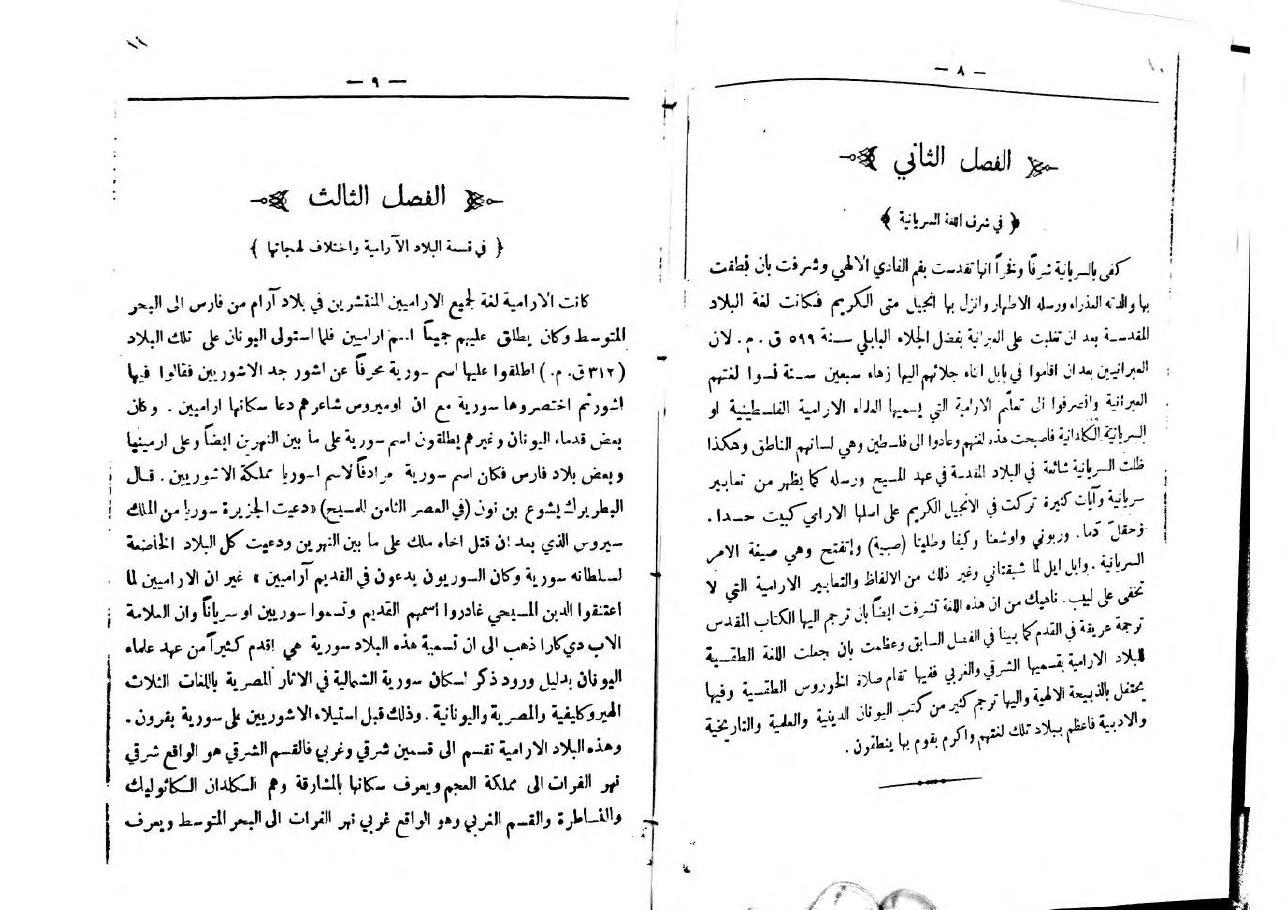 ١٠
— ٨ —
الفصل الثاني
﴿ في شرف اللغة السريانية ﴾
كفى بالسريانية شرفًا وفخرًا انها تقدست بفم الفادي الالهي وشرفت بأن نطقت
بها والدته العذراء ورسله الاطهار وانزل بها انجيل متى الكريم فكانت لغة البلاد
المقدسة بعد ان تغلبت على العبرانية بفضل الجلاء البابلي سنة ٥٩٩ ق . م . لان
العبرانيين بعد ان اقاموا في بابل اثناء جلائهم اليها زهاء سبعين سنة نسوا لغتهم
العبرانية وانصرفوا الى تعلّم الارامية التي يسميها العلماء الارامية الفلسطينية او
السريانية الكلدانية فاصبحت هذه لغتهم وعادوا الى فلسطين وهي لسانهم الناطق وهكذا
ظلت السريانية شائعة في البلاد المقدسة في عهد المسيح ورسله كما يظهر من تعابير
سريانية وآيات كثيرة تركت في الانجيل الكريم على اصلها الارامي كبيت حسدا .
وحقل دما . وربوني واوشعنا وكيفا وطليثا (صبية) وإتفتح وهي صيغة الامر
السريانية . وايل ايل لما شبقتاني وغير ذلك من الالفاظ والتعابير الارامية التي لا
تخفى على لبيب . ناهيك من ان هذه اللغة تشرفت ايضًا بان ترجم اليها الكتاب المقدس
ترجمة عريقة في القدم كما بينا في الفصل السابق وعظمت بان جعلت اللغة الطقسية
للبلاد الارامية بقسميها الشرقي والغربي ففيها تقام صلاة الخوروس الطقسية وفيها
يحتفل بالذبيحة الالهية واليها ترجم كثير من كتب اليونان الدينية والعلمية والتاريخية
والادبية فاعظم ببلاد تلك لغتهم واكرم بقوم بها ينطقون .
١١
— ٩ —
الفصل الثالث
{ في قسمة البلاد الآرامية واختلاف لهجاتها }
كانت الارامية لغة لجميع الاراميين المنتشرين في بلاد آرام من فارس الى البحر
المتوسط وكان يطلق عليهم جميعًا اسم اراميين فلما استولى اليونان على تلك البلاد
(٣١٢ ق. م.) اطلقوا عليها اسم سورية محرفًا عن اشور جد الاشوريين فقالوا فيها
اشور ثم اختصروها سورية مع ان اوميروس شاعرهم دعا سكانها اراميين . وكان
بعض قدماء اليونان وغيرهم يطلقون اسم سورية على ما بين النهرين ايضًا وعلى ارمينيا
وبعض بلاد فارس فكان اسم سورية مرادفًا لاسم اسوريا مملكة الاشوريين . قال
البطريرك يشوع بن نون (في العصر الثامن للمسيح) «دعيت الجزيرة سوريا من الملك
سيروس الذي بعد ان قتل اخاه ملك على ما بين النهرين ودعيت كل البلاد الخاضعة
لسلطانه سورية وكان السوريون يدعون في القديم آراميين » غير ان الاراميين لما
اعتنقوا الدين المسيحي غادروا اسمهم القديم وتسموا سوريين او سريانًا وان العلامة
الاب دي كارا ذهب الى ان تسمية هذه البلاد سورية هي اقدم كثيرًا من عهد علماء
اليونان بدليل ورود ذكر لسكان سورية الشمالية في الاثار المصرية باللغات الثلاث
الهيروكليفية والمصرية واليونانية . وذلك قبل استيلاء الاشوريين على سورية بقرون .
وهذه البلاد الارامية تقسم الى قسمين شرقي وغربي فالقسم الشرقي هو الواقع شرقي
نهر الفرات الى مملكة العجم ويعرف سكانها بالمشارقة وهم الكلدان الكاثوليك
والنساطرة والقسم الغربي وهو الواقع غربي نهر الفرات الى البحر المتوسط ويعرف